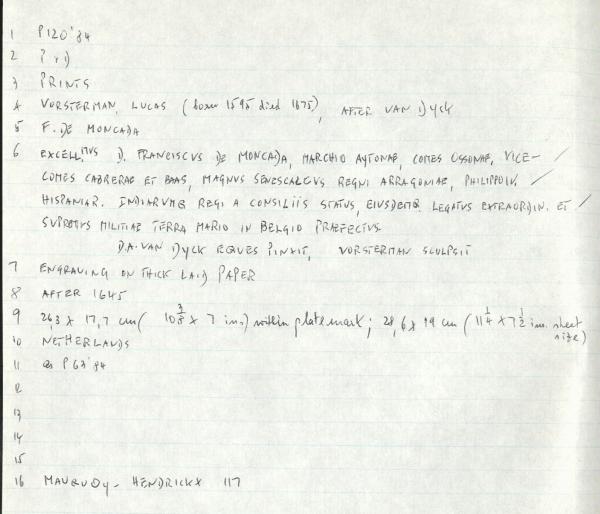 1 P120'84
2 P r 1)
3 PRINTS
4 VORSTERMAN, LUCAS (born 1595 died 1675), AFTER VAN DYCK
5 F. DE MONCADA
6 EXCELL.MVS D. FRANCISCVS DE MONCADA, MARCHIO AYTONAE, COMES OSSONAE, VICE- /
COMES CABRERAE ET BAAS, MAGNVS SENESCALCVS REGNI ARRAGONIAE, PHILIPPO IV. /
HISPANIAR. INDIARVMQ REGI A CONSILIIS STATVS, EIVSDEMQ LEGATVS EXTRAORDIN. ET /
SVPREMVS MILITIAE TERRA MARIQ IN BELGIO PRAEFECTVS.
D.A. VAN DYCK EQUES PINXIT, VORSTERMAN SCULPSIT
7 ENGRAVING ON THICK LAID PAPER
8 AFTER 1645
9 26,3 x 17,7 cm ( 10 3/8 x 7 ins) within plate mark; 28,6 x 19 cm (11 1/4 x 7 1/2 ins. sheet
size)
10 NETHERLANDS
11 as P 63'84
12
13
14
15
16 MAUQUOY-HENDRICKX 117